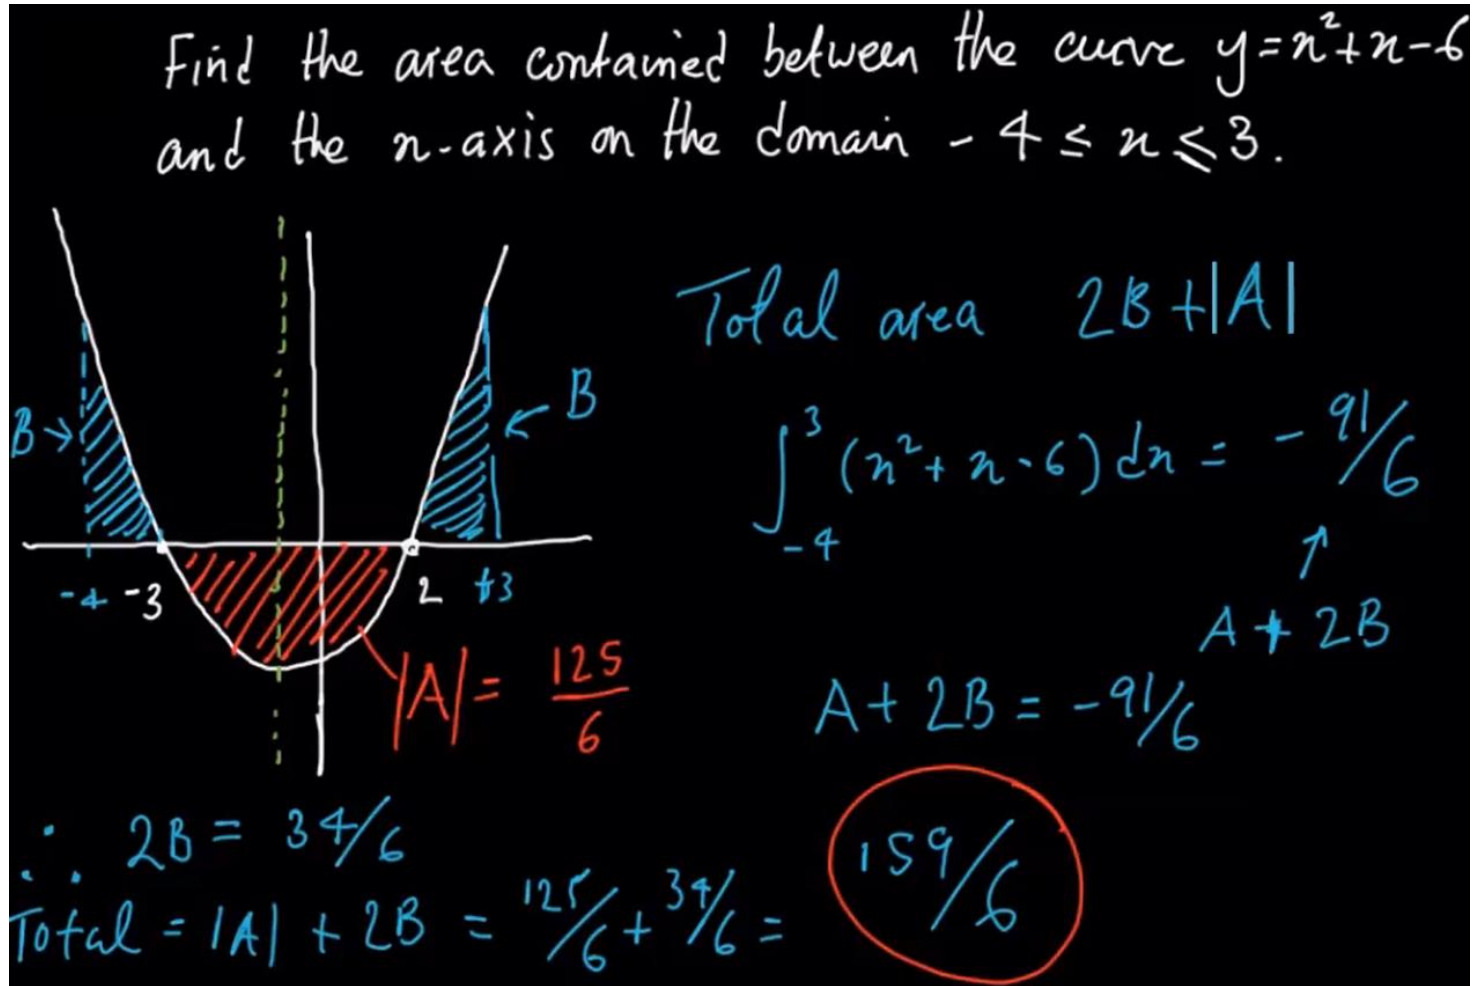 Find the area contained between the curve y=x²+x-6
and the x-axis on the domain -4≤x≤3.
Total area 2B+|A|
B→
← B
∫₋₄³ (x²+x-6)dx = -91/6
↑
A+2B
-4 -3 2 +3
|A| = 125/6
A+2B = -91/6
∴ 2B = 34/6
Total = |A| + 2B = 125/6 + 34/6 = 159/6